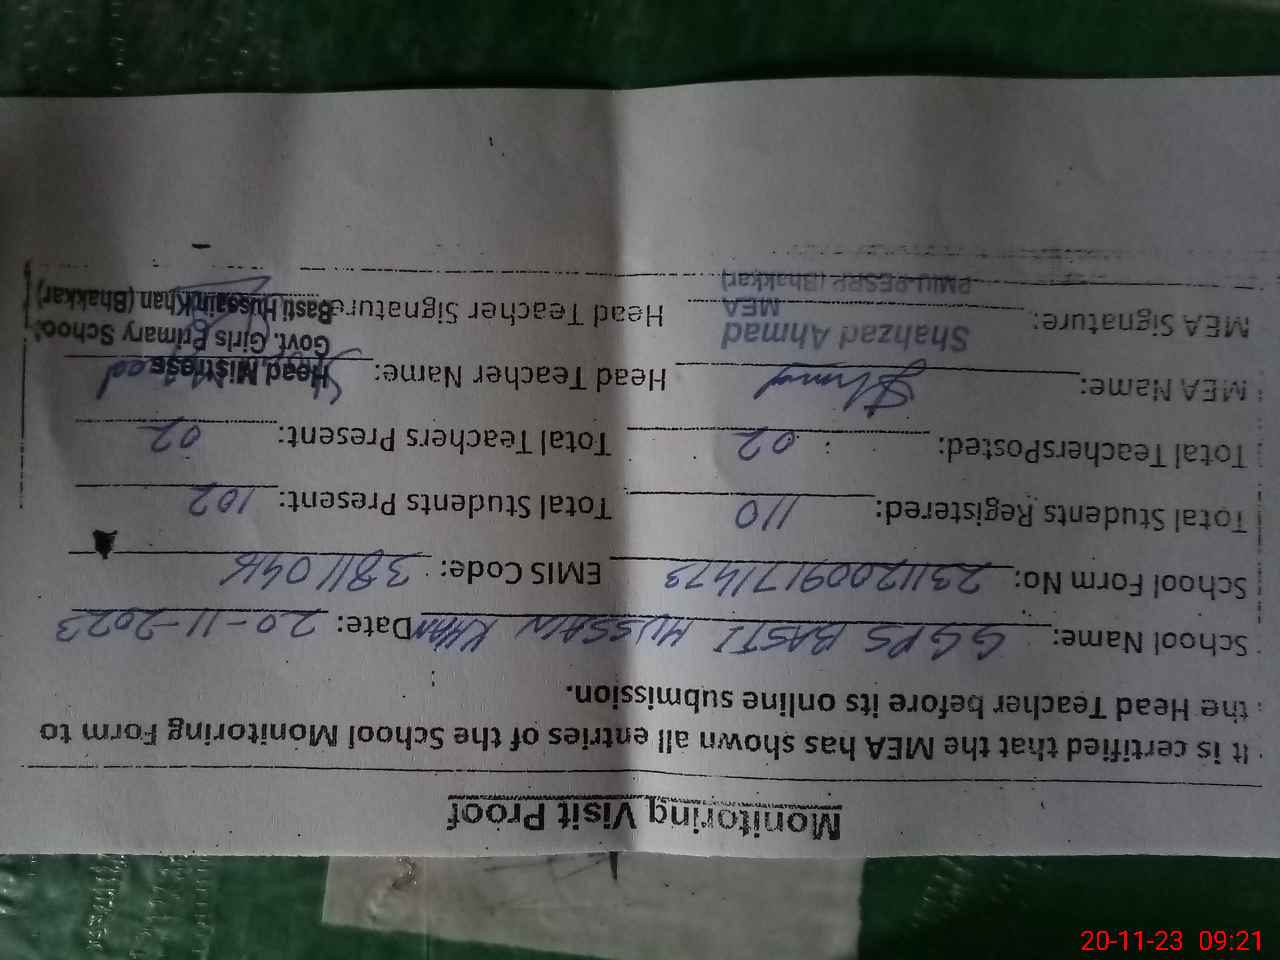 Monitoring Visit Proof
It is certified that the MEA has shown all entries of the School Monitoring Form to
the Head Teacher before its online submission.
School Name: GGPS BASTI HUSSAIN KHAN Date: 20-11-2023
School Form No: 23112009171473 EMIS Code: 38110416
Total Students Registered: 110 Total Students Present: 102
Total TeachersPosted: 02 Total Teachers Present: 02
MEA Name: Head Teacher Name:
Head Mistress
Shahzad Ahmad
Govt. Girls Primary School
MEA Signature: MEA Head Teacher Signature
Basti Hussain Khan (Bhakkar)
PMIU-PESRP (Bhakkar)
20-11-23 09:21